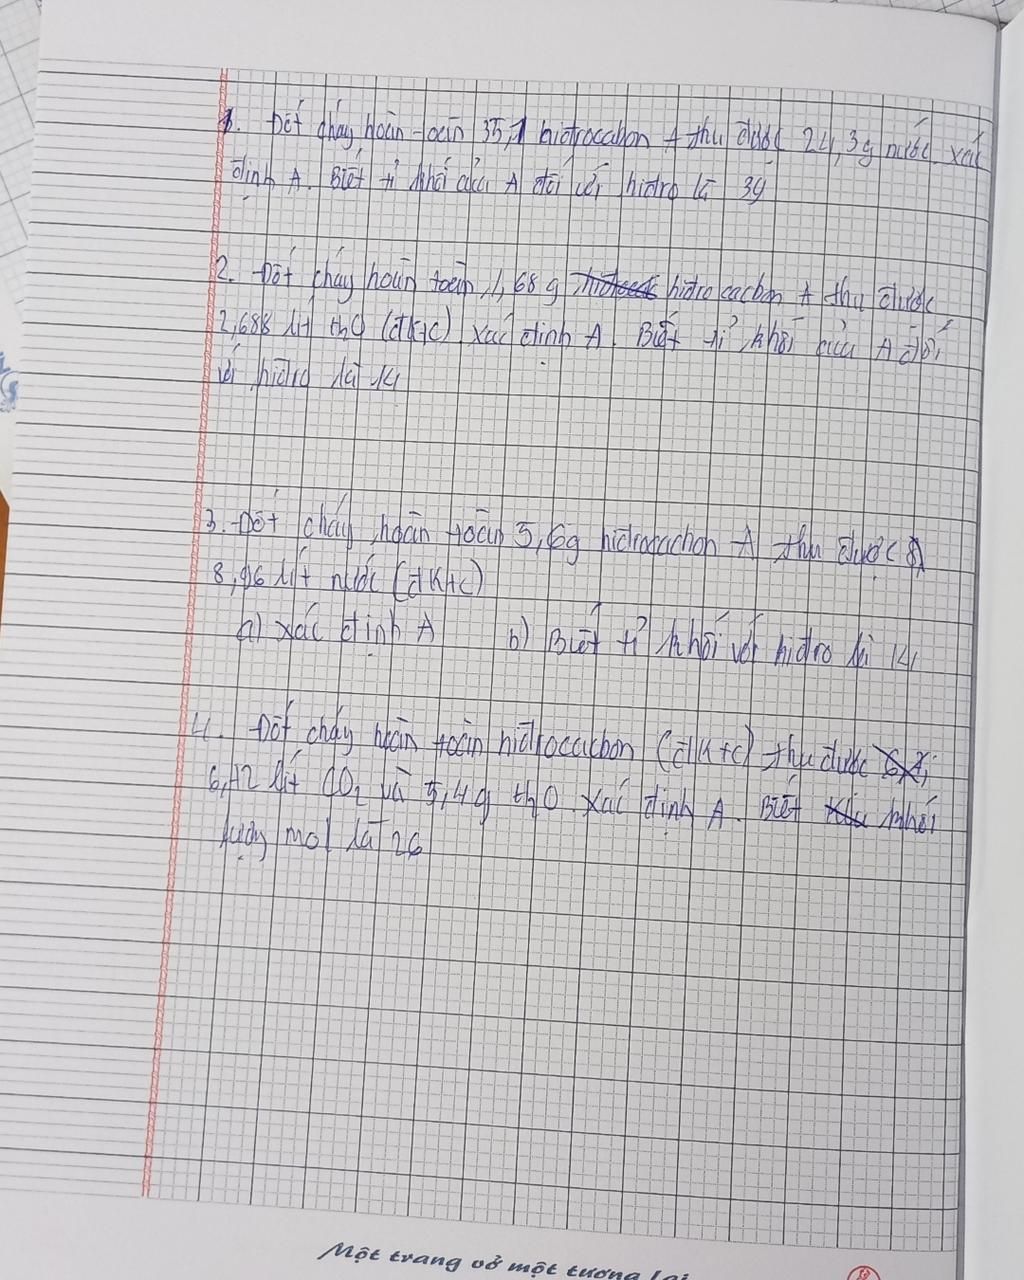 1. Đốt cháy hoàn toàn 35,1 hiđrocacbon A thu được 24,3g nước. xác
định A. Biết tỉ khối của A đối với hiđro là 39
2. Đốt cháy hoàn toàn 1,68g hiđrocacbon A thu được
2,688 lít H2O (đktc) xác định A. Biết tỉ khối của A đối
với hiđro là 14
3. Đốt cháy hoàn toàn 5,6g hiđrocacbon A thu được
8,96 lít nước (đktc)
a) xác định A b) Biết tỉ khối với hiđro là 14
4. Đốt cháy hoàn toàn hiđrocacbon (đktc) thu được
6,72 lít CO2 và 5,4g H2O. xác định A. Biết khối
lượng mol là 26
Một trang vở một tương lai